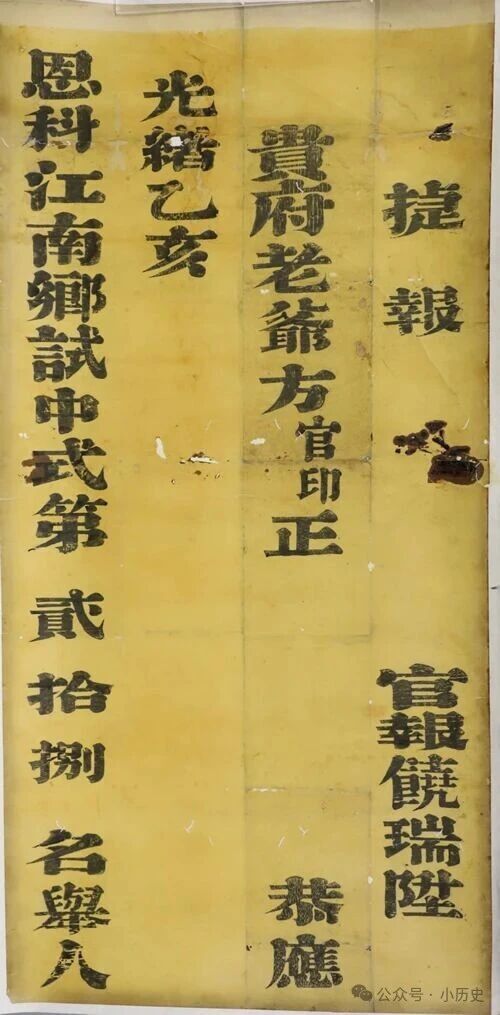 捷報
官報饒瑞陞
貴府老爺方官印正
恭應
光緒乙亥
恩科江南鄉試中式第貳拾捌名舉人
公众号·小历史